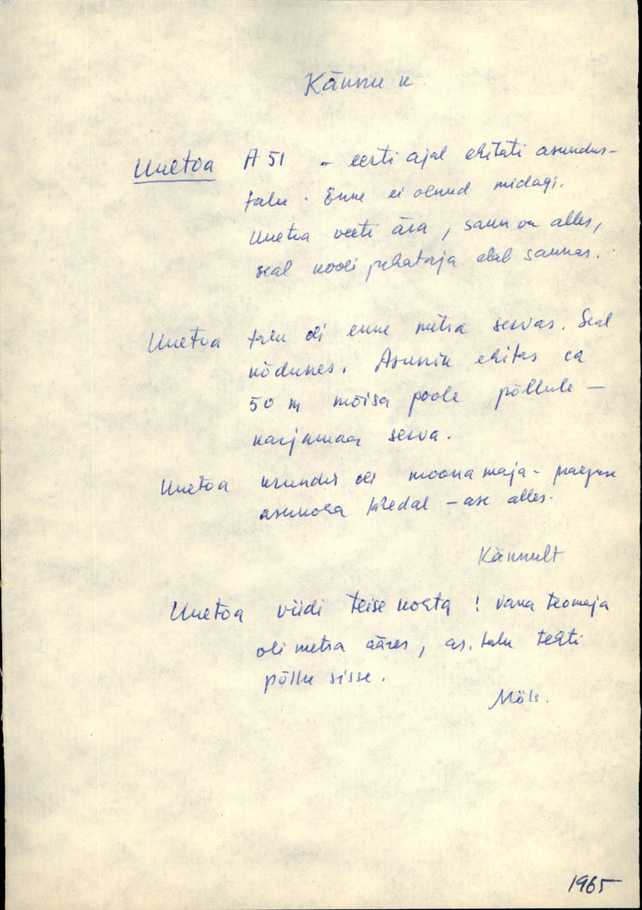 Kännu k
Unetoa A 51 - eesti ajal ehitati asundus-
talu. Enne ei olnud midagi.
Unetoa veeti ära, saun on alles,
seal kooli juhataja elab saunas.
Unetoa talu oli enne metsa servas. Seal
kõdunes. Asunik ehitas ca
50 m mõisa poole põllule -
karjamaa serva.
Unetoa krundis oli moonamaja - praeguse
asunduse lähedal - ase alles.
Kännult
Unetoa viidi teise kohta! Vana teomaja
oli metsa ääres, as. talu tehti
põllu sisse.
Möls.
1965